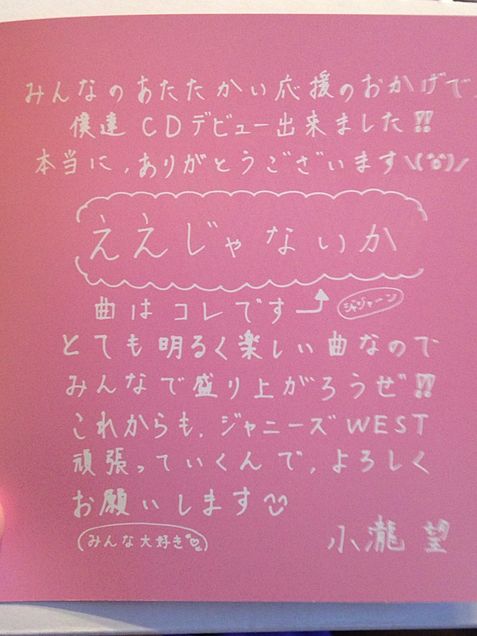 みんなのあたたかい応援のおかげで、
僕達 CDデビュー出来ました!!
本当に、ありがとうございます\(^o^)/
ええじゃないか
曲はコレです
ジャジャーン
とても明るく楽しい曲なので
みんなで盛り上がろうぜ!!
これからも、ジャニーズWEST
頑張っていくんで、よろしく
お願いします
(みんな大好き)
小瀧 望